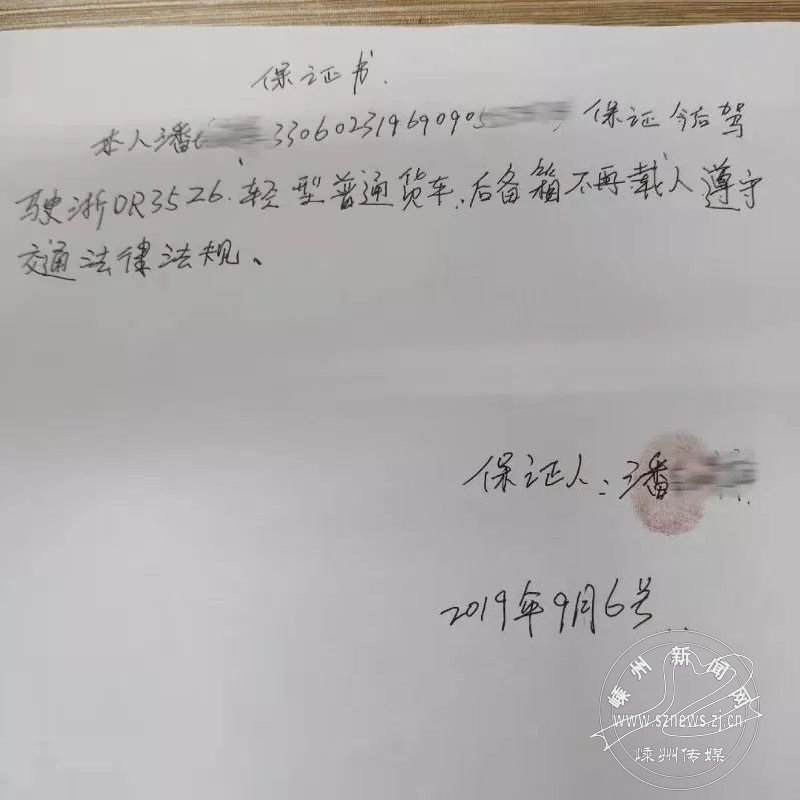 保证书.
本人潘 330602319690905 , 保证今后驾
驶浙DR3526.轻型普通货车,后备箱不再载人遵守
交通法律法规、
保证人:潘
2019年9月6号
嵊州新闻网
www.sznews.zj.cn
嵊州传媒